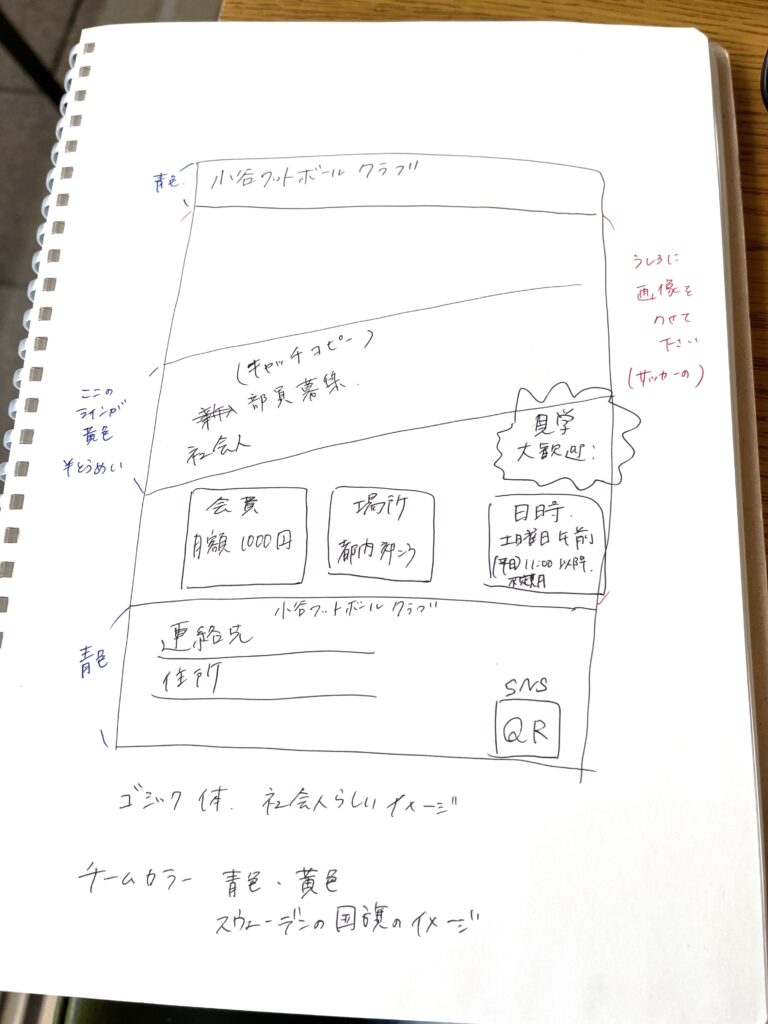 青色
小谷フットボール クラブ
うしろに
画像を
のせて
下さい
(サッカーの)
ここの
ラインが
黄色
半とうめい
(キャッチコピー)
部員募集.
社会人
見学
大歓迎!
会費
月額 1000円
場所
都内
日時.
土曜日午前
(平日) 11:00 以降.
小谷フットボール クラブ
青色
連絡先
住所
SNS
QR
ゴシック体. 社会人らしいイメージ
チームカラー 青色・黄色
スウェーデンの国旗のイメージ